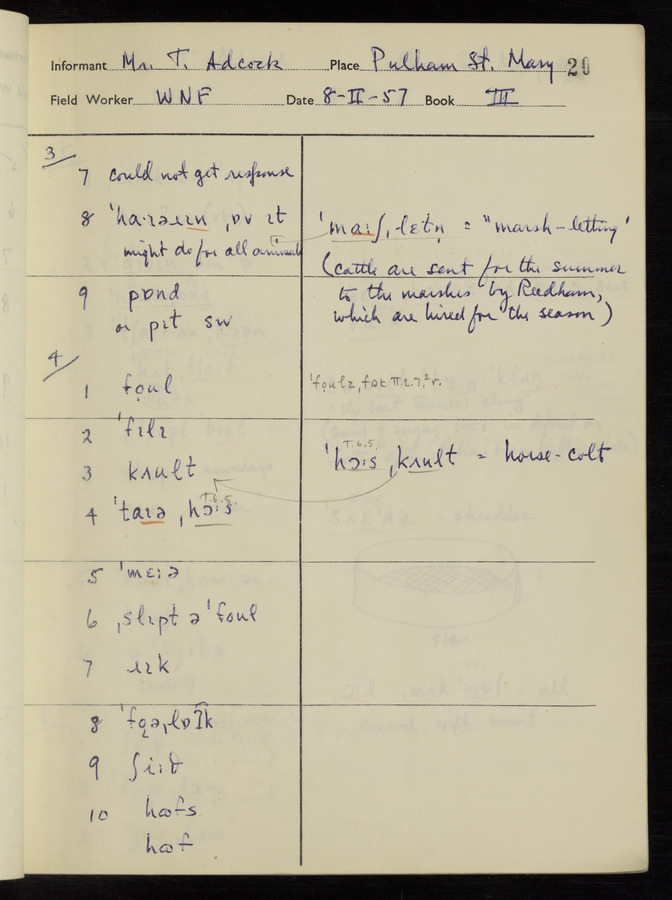 Informant Mr. T. Adcock Place Pulham St. Mary 20
Field Worker WNF Date 8-II-57 Book III
3/
7 could not get response
8 ˈhaːrəɪɪn ˌɒv ɪt
might do for all animals
ˈmaːʃˌlɛtn̩ = "marsh-letting"
(cattle are sent for the summer
to the marshes by Reedham,
which are hired for the season)
9 pɒnd
or pɪt sw
4/
1 foul
2 ˈfɪlɪ
3 kʌult
T.6.5.
ˈhɔːsˌkʌult = horse-colt
4 ˈtaɪəˌhɔːs
T.6.5.
5 ˈmɛːə
6 ˌslɪpt ə ˈfoul
7
8
9 ʃiːd
10 hʊfs
hʊf